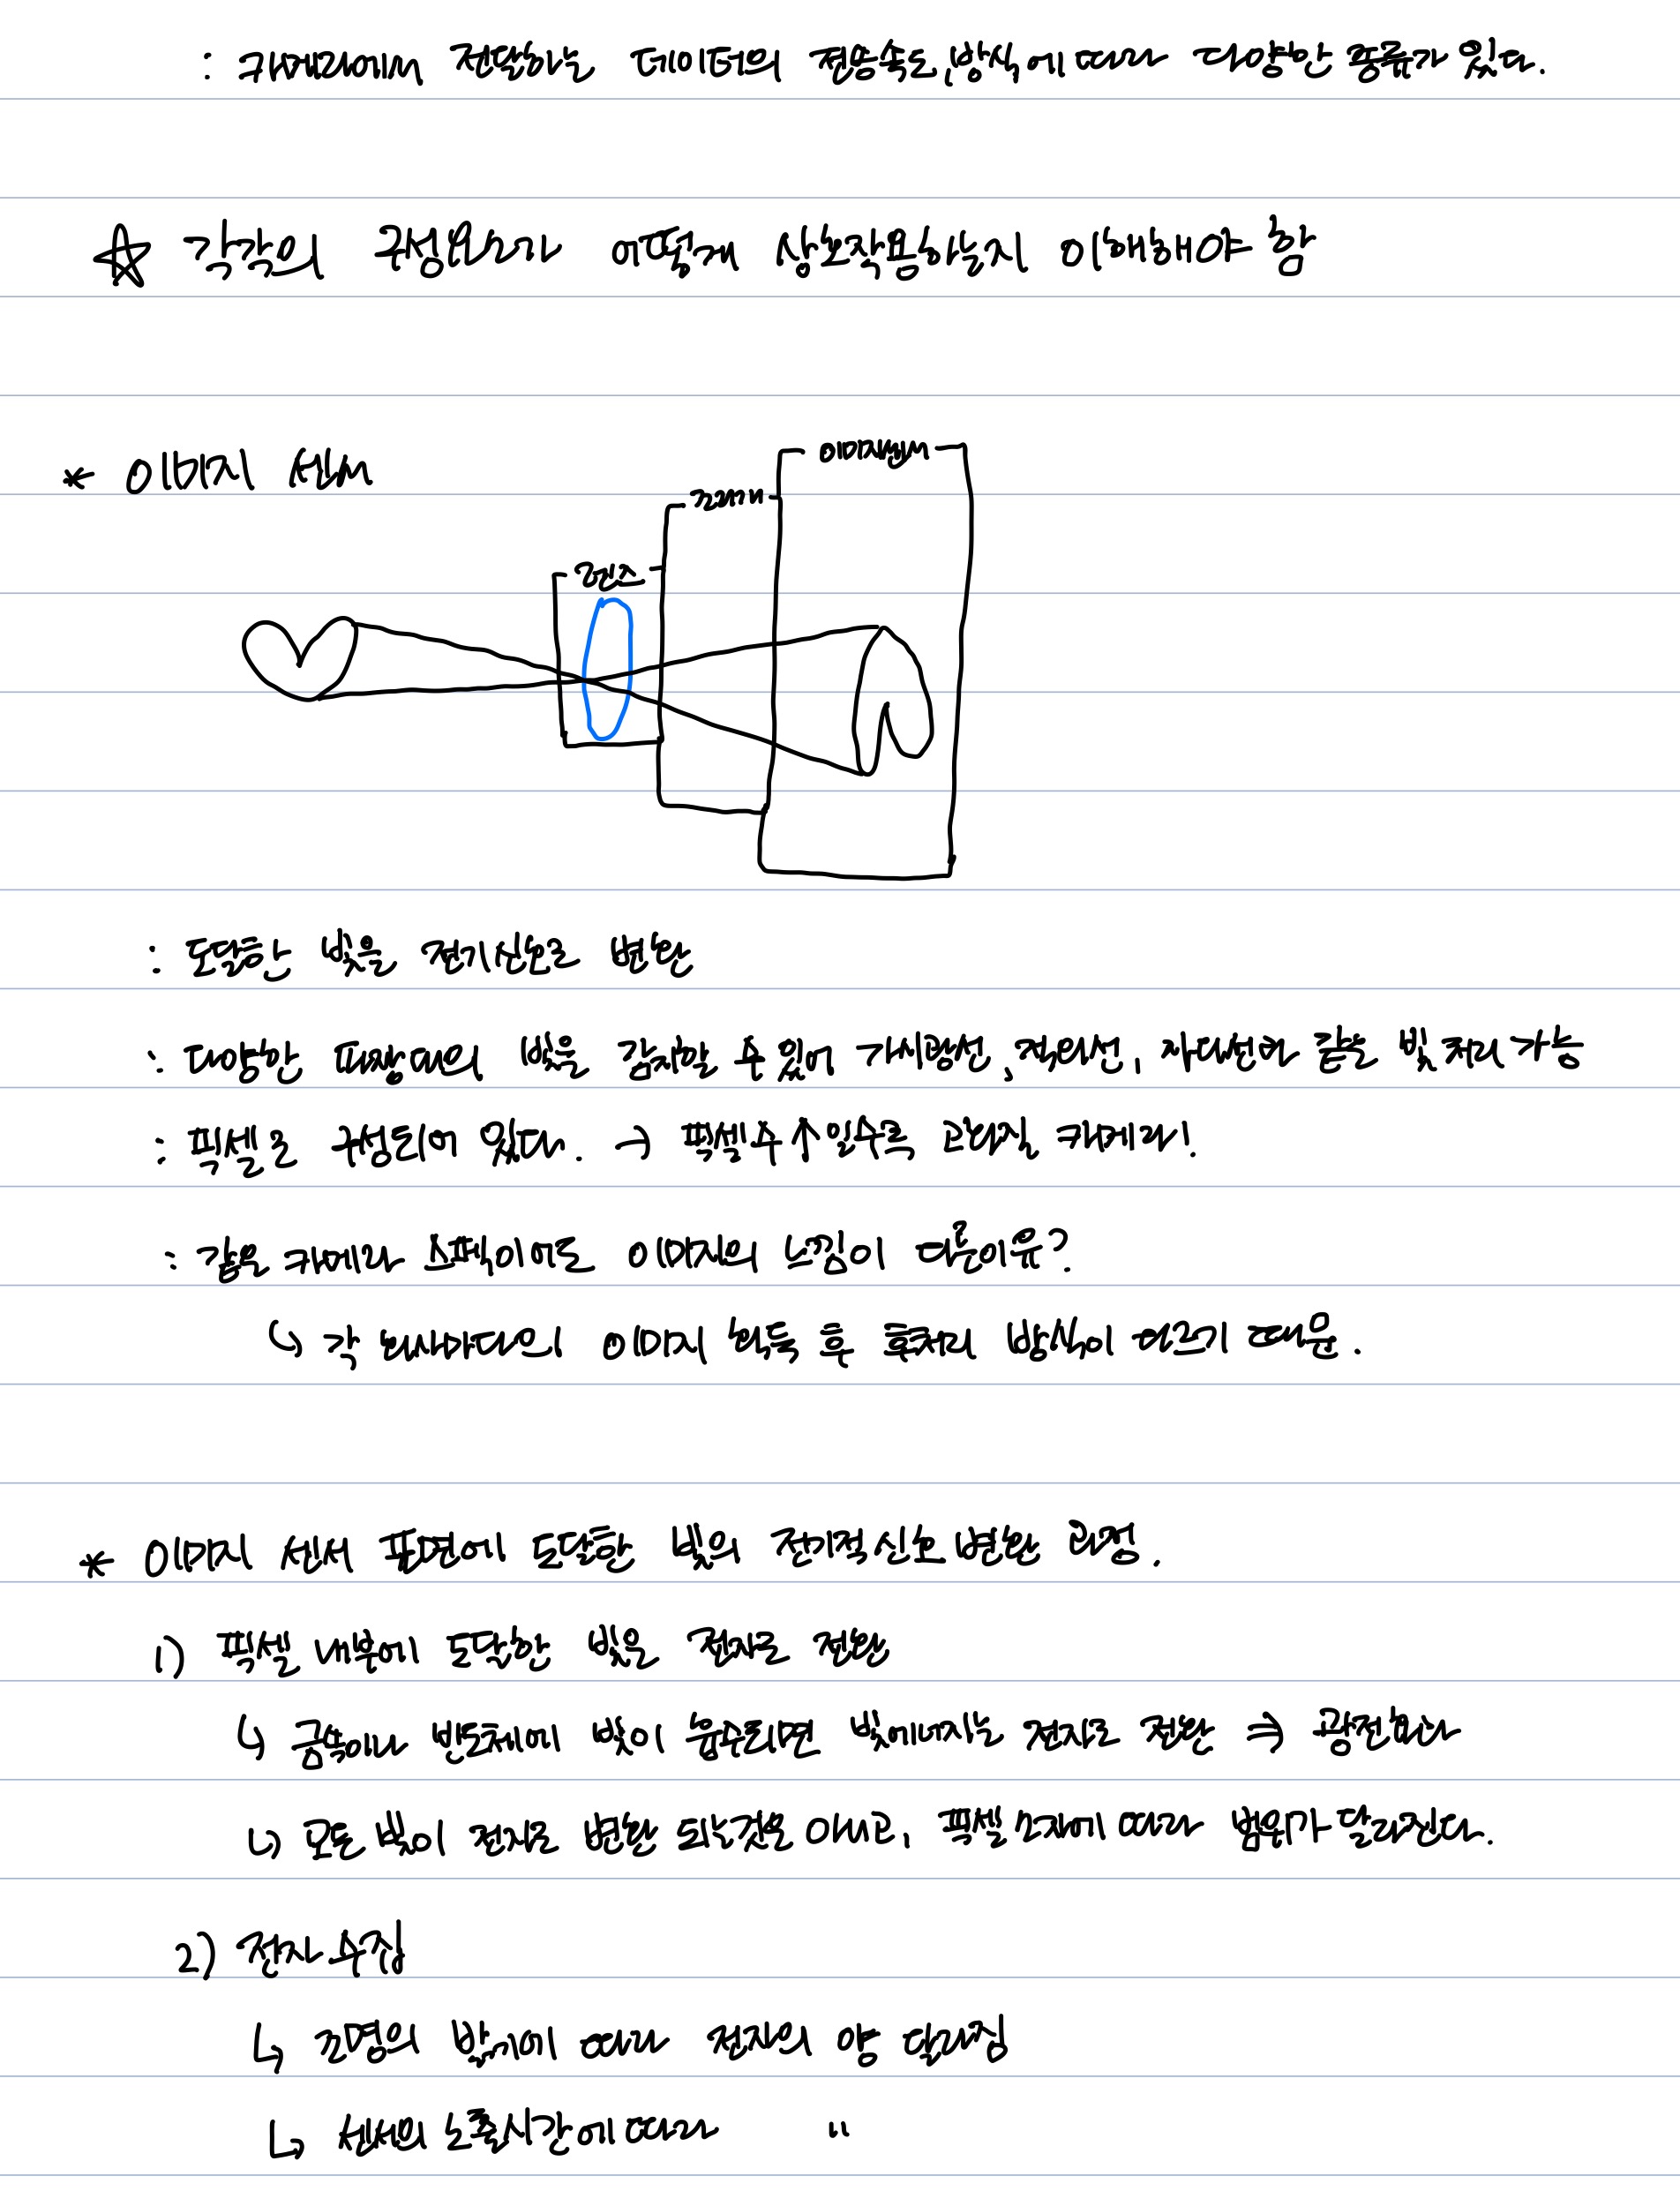 : 카메라에서 전달하는 데이터의 전송속도, 방식에 따라 다양한 종류가 있다.
☆ 각각의 구성원리와 어떻게 상호작용하는지 이해해야 함
* 이미지 센서
이미지센서
카메라
렌즈
: 도달한 빛을 전기신호로 변환
: 다양한 파장대의 빛을 감지할 수 있어 가시광선, 적외선, 자외선과 같은 빛 처리 가능
: 픽셀로 구성되어 있다. → 픽셀수↑일수록 고화질 카메라!
: 같은 카메라 스펙이어도 이미지의 느낌이 다른이유?
↳ 각 회사마다의 이미지 획득 후 후처리 방식이 다르기 때문.
* 이미지 센서 표면에 도달한 빛의 전기적신호 변환 과정.
1) 픽셀 내부에 도달한 빛을 전자로 전환
↳ 금속이나 반도체에 빛이 흡수되면 빛에너지를 전자로 전환 ⇒ 광전효과
↳ 모든 빛이 전자로 변환 되는것은 아니고, 픽셀 소자에 따라 범위가 달라진다.
2) 전자 수집
↳ 조명의 밝기에 따라 전자의 양 달라짐
↳ 센서의 노출시간에 따라 "